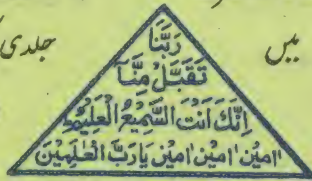 میں
جلدی
رَبَّنَا
تَقَبَّلْ مِنَّا
اِنَّكَ اَنْتَ السَّمِیْعُ الْعَلِیْمُ
اٰمِیْن اٰمِیْن اٰمِیْن یَا رَبَّ الْعٰلَمِیْنَ